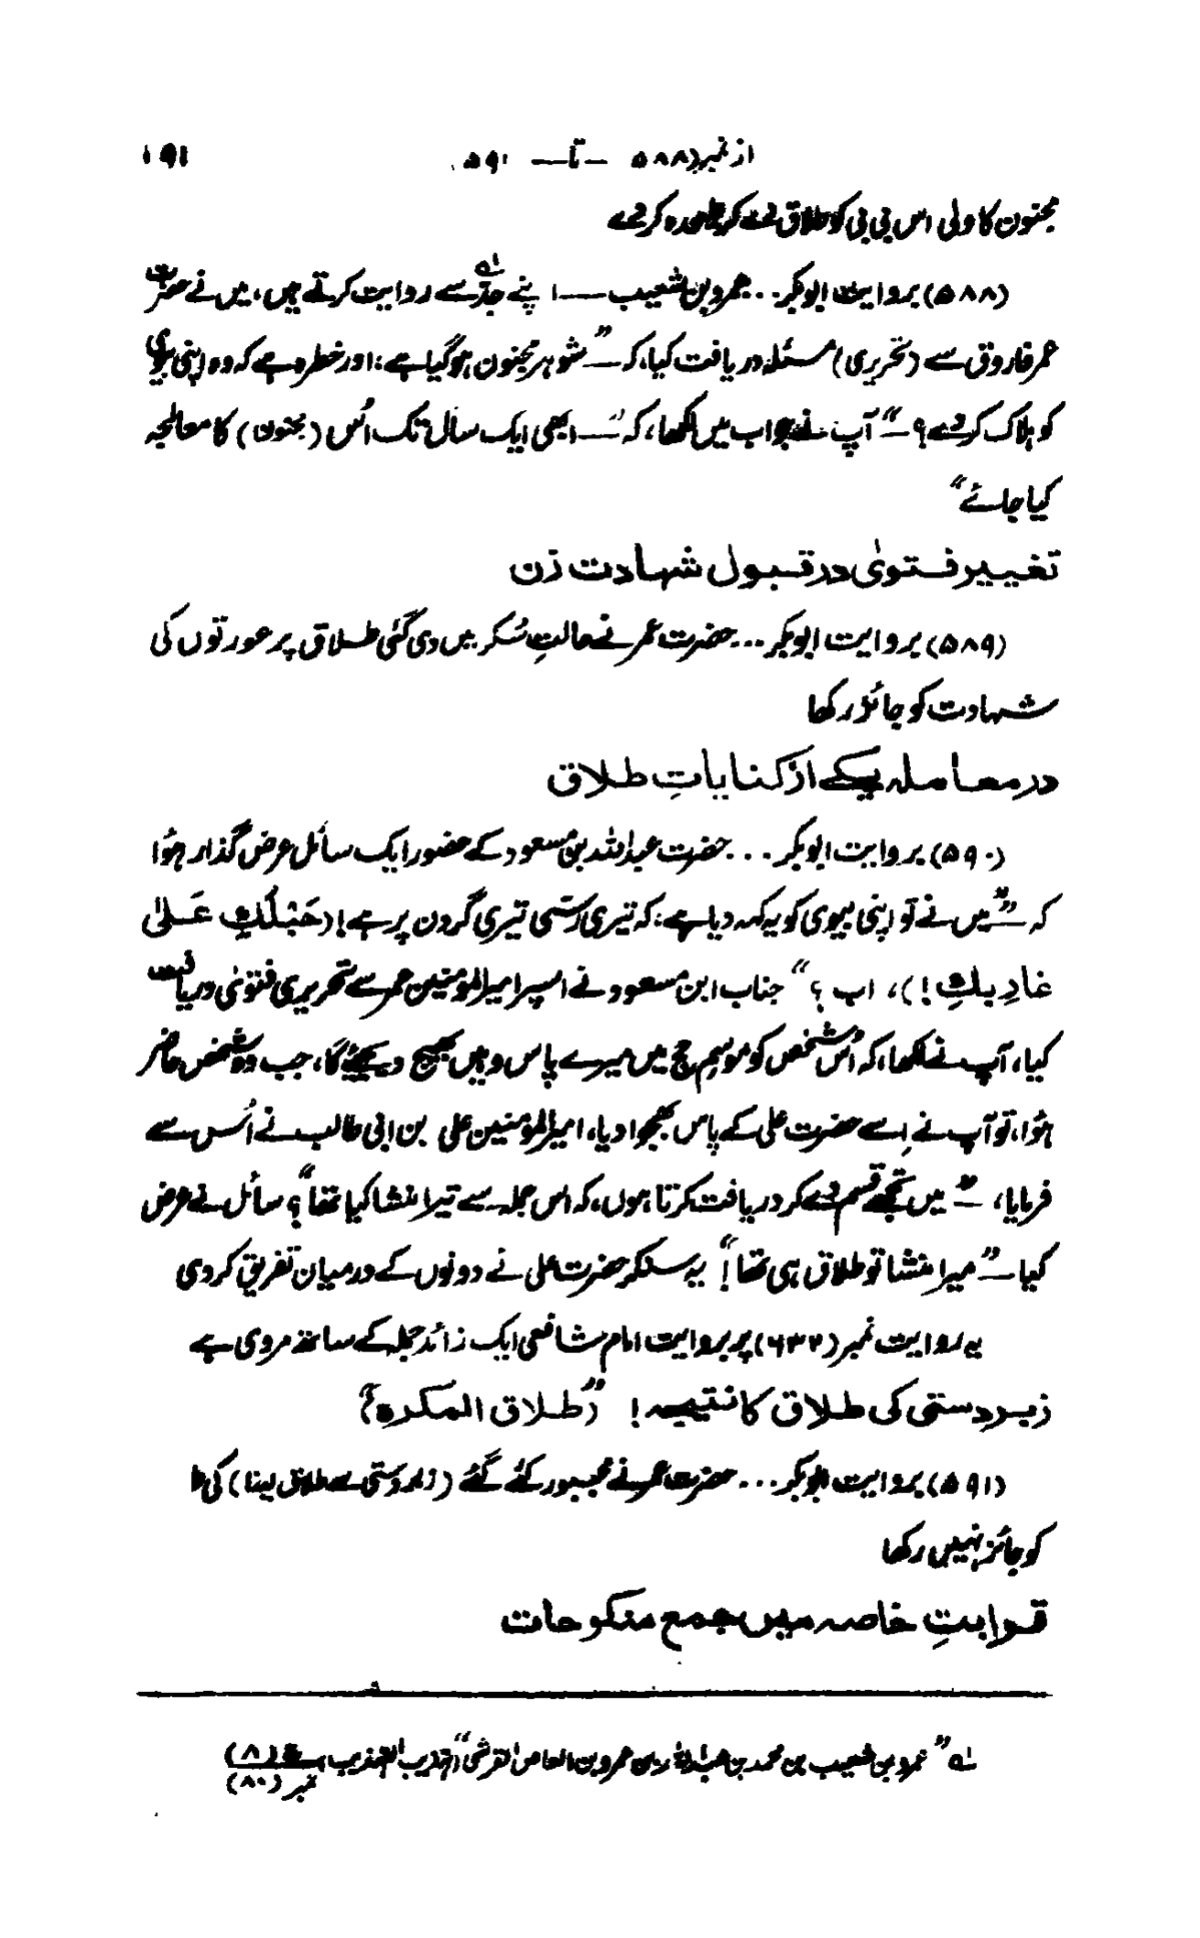 از نمبر(۵۸۸ — تا — ۵۹۱ ۱۹۱
مجنون کا ولی اس بی بی کو طلاق دے کر علٰحدہ کر دے
(۵۸۸) بروایت ابوبکر... عمرو بن شعیب — اپنے جدؔ سے روایت کرتے ہیں، میں نے حضرت
عمر فاروق سے (تحریری) مسئلہ دریافت کیا، کہ — ” شوہر مجنون ہو گیا ہے؛ اور خطرہ ہے کہ وہ اپنی بیوی
کو ہلاک کر دے؟ —“ آپ نے جواب میں لکھا، کہ ”— ابھی ایک سال تک اُس (مجنون) کا معالجہ
کیا جائے“
تغییر فتویٰ در قبول شہادت زن
(۵۸۹) بروایت ابوبکر... حضرت عمر نے حالتِ سُکر میں دی گئی طلاق پر عورتوں کی
شہادت کو جائز رکھا
در معاملہ یکے از کنایاتِ طلاق
(۵۹۰) بروایت ابوبکر... حضرت عبداللہ بن مسعود کے حضور ایک سائل عرض گذار ہُوا
کہ —” میں نے تو اپنی بیوی کو یہ کہہ دیا ہے: کہ تیری رسّی تیری گردن پر ہے! (حَبْلُكِ عَلیٰ
غادِبِكِ!)، اب؟“ جناب ابن مسعود نے اسپر امیر المومنین عمر سے تحریری فتویٰ دریافت
کیا، آپ نے لکھا، کہ اُس شخص کو موسم حج میں میرے پاس وہیں بھیج دیجئے گا، جب وہ شخص حاضر
ہُوا، تو آپ نے اِسے حضرت علی کے پاس بھجوا دیا، امیر المومنین علی بن ابی طالب نے اُس سے
فرمایا، —” میں تجھے قسم دے کر دریافت کرتا ہوں، کہ اس جملہ سے تیرا منشا کیا تھا“؟ سائل نے عرض
کیا —” میرا منشا تو طلاق ہی تھا“! یہ سنکر حضرت علی نے دونوں کے درمیان تفریق کر دی
یہ روایت نمبر (۶۳۲) پر بروایت امام شافعی ایک زائد جملہ کے ساتھ مروی ہے
زبردستی کی طلاق کا نتیجہ! (”طلاق المکرہ“)
(۵۹۱) بروایت ابوبکر... حضرت عمر نے مجبور کئے گئے (زبردستی سے طلاق لینا) کی
کو جائز نہیں رکھا
قرابتِ خاصہ میں جمع منکوحات
لے ” عمرو بن شعیب بن محمد بن عبداللہ بن عمرو بن العاص القرشی“ (تہذیب التہذیب (۸)
نمبر (۸۰)